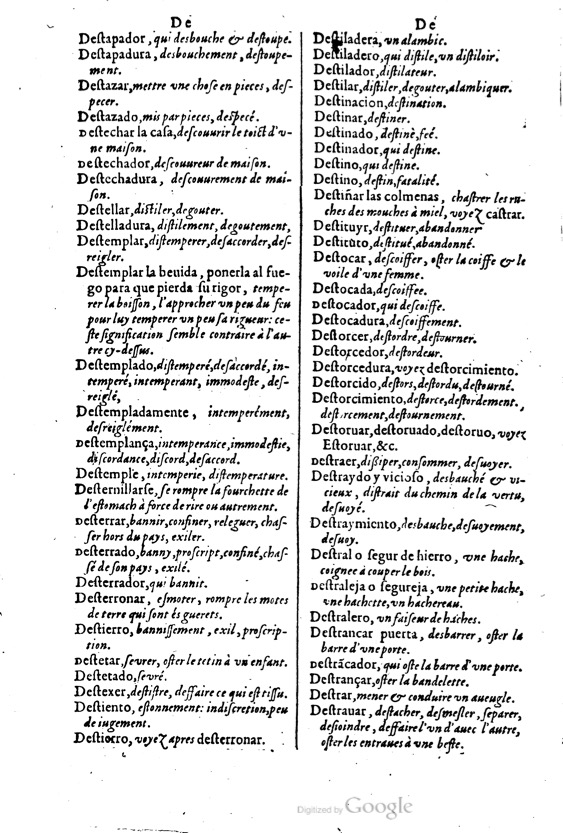 De
Destapador, qui desbouche & destoupe.
Destapadura, desbouchement, destoupe-
ment.
Destazar, mettre vne chose en pieces, des-
pecer.
Destazado, mis par pieces, despecé.
Destechar la casa, descouurir le toict d'v-
ne maison.
Destechador, descouureur de maison.
Destechadura, descouurement de mai-
son.
Destellar, distiler, degouter.
Destelladura, distilement, degoutement,
Destemplar, distemperer, desaccorder, des-
reigler.
Destemplar la beuida, ponerla al fue-
go para que pierda su rigor, tempe-
rer la boisson, l'approcher vn peu du feu
pour luy temperer vn peu sa rigueur: ce-
ste signification semble contraire à l'au-
tre cy-dessus.
Destemplado, distemperé, desaccordé, in-
temperé, intemperant, immodeste, des-
reiglé,
Destempladamente, intemperément,
desreiglément.
Destemplança, intemperance, immodestie,
discordance, discord, desaccord.
Destemple, intemperie, distemperature.
Desternillarse, se rompre la fourchette de
l'estomach à force de rire ou autrement.
Desterrar, bannir, confiner, releguer, chas-
ser hors du pays, exiler.
Desterrado, banny, proscript, confiné, chas-
sé de son pays, exilé.
Desterrador, qui bannit.
Desterronar, esmoter, rompre les motes
de terre qui sont és guerets.
Destierro, bannissement, exil, proscrip-
tion.
Destetar, sevrer, oster le tetin à vn enfant.
Destetado, sevré.
Destexer, destistre, deffaire ce qui est tissu.
Destiento, estonnement: indiscretion, peu
de iugement.
Destierro, voyez apres desterronar.
De
Destiladera, vn alambic.
Destiladero, qui distile, vn distiloir.
Destilador, distilateur.
Destilar, distiler, degouter, alambiquer.
Destinacion, destination.
Destinar, destiner.
Destinado, destiné, feé.
Destinador, qui destine.
Destino, qui destine.
Destino, destin, fatalité.
Destiñar las colmenas, chastrer les ru-
ches des mouches à miel, voyez castrar.
Destituyr, destituer, abandonner
Destituto, destitué, abandonné.
Destocar, descoiffer, oster la coiffe & le
voile d'vne femme.
Destocada, descoiffee.
Destocador, qui descoiffe.
Destocadura, descoiffement.
Destorcer, destordre, destourner.
Destorcedor, destordeur.
Destorcedura, voyez destorcimiento.
Destorcido, destors, destordu, destourné.
Destorcimiento, destorce, destordement,
destorcement, destournement.
Destoruar, destoruado, destoruo, voyez
Estoruar, &c.
Destraer, dissiper, consommer, desuoyer.
Destraydo y vicioso, desbauché & vi-
cieux, distrait du chemin de la vertu,
desuoyé.
Destraymiento, desbauche, desuoyement,
desuoy.
Destral o segur de hierro, vne hache,
coignee à couper le bois.
Destraleja o segureja, vne petite hache,
vne hachette, vn hachereau.
Destralero, vn faiseur de haches.
Destrancar puerta, desbarrer, oster la
barre d'vne porte.
Destrãcador, qui oste la barre d'vne porte.
Destrançar, oster la bandelette.
Destrar, mener & conduire vn aueugle.
Destrauar, destacher, desmesler, separer,
desioindre, deffaire l'vn d'auec l'autre,
oster les entraues à vne beste.
Digitized by Google